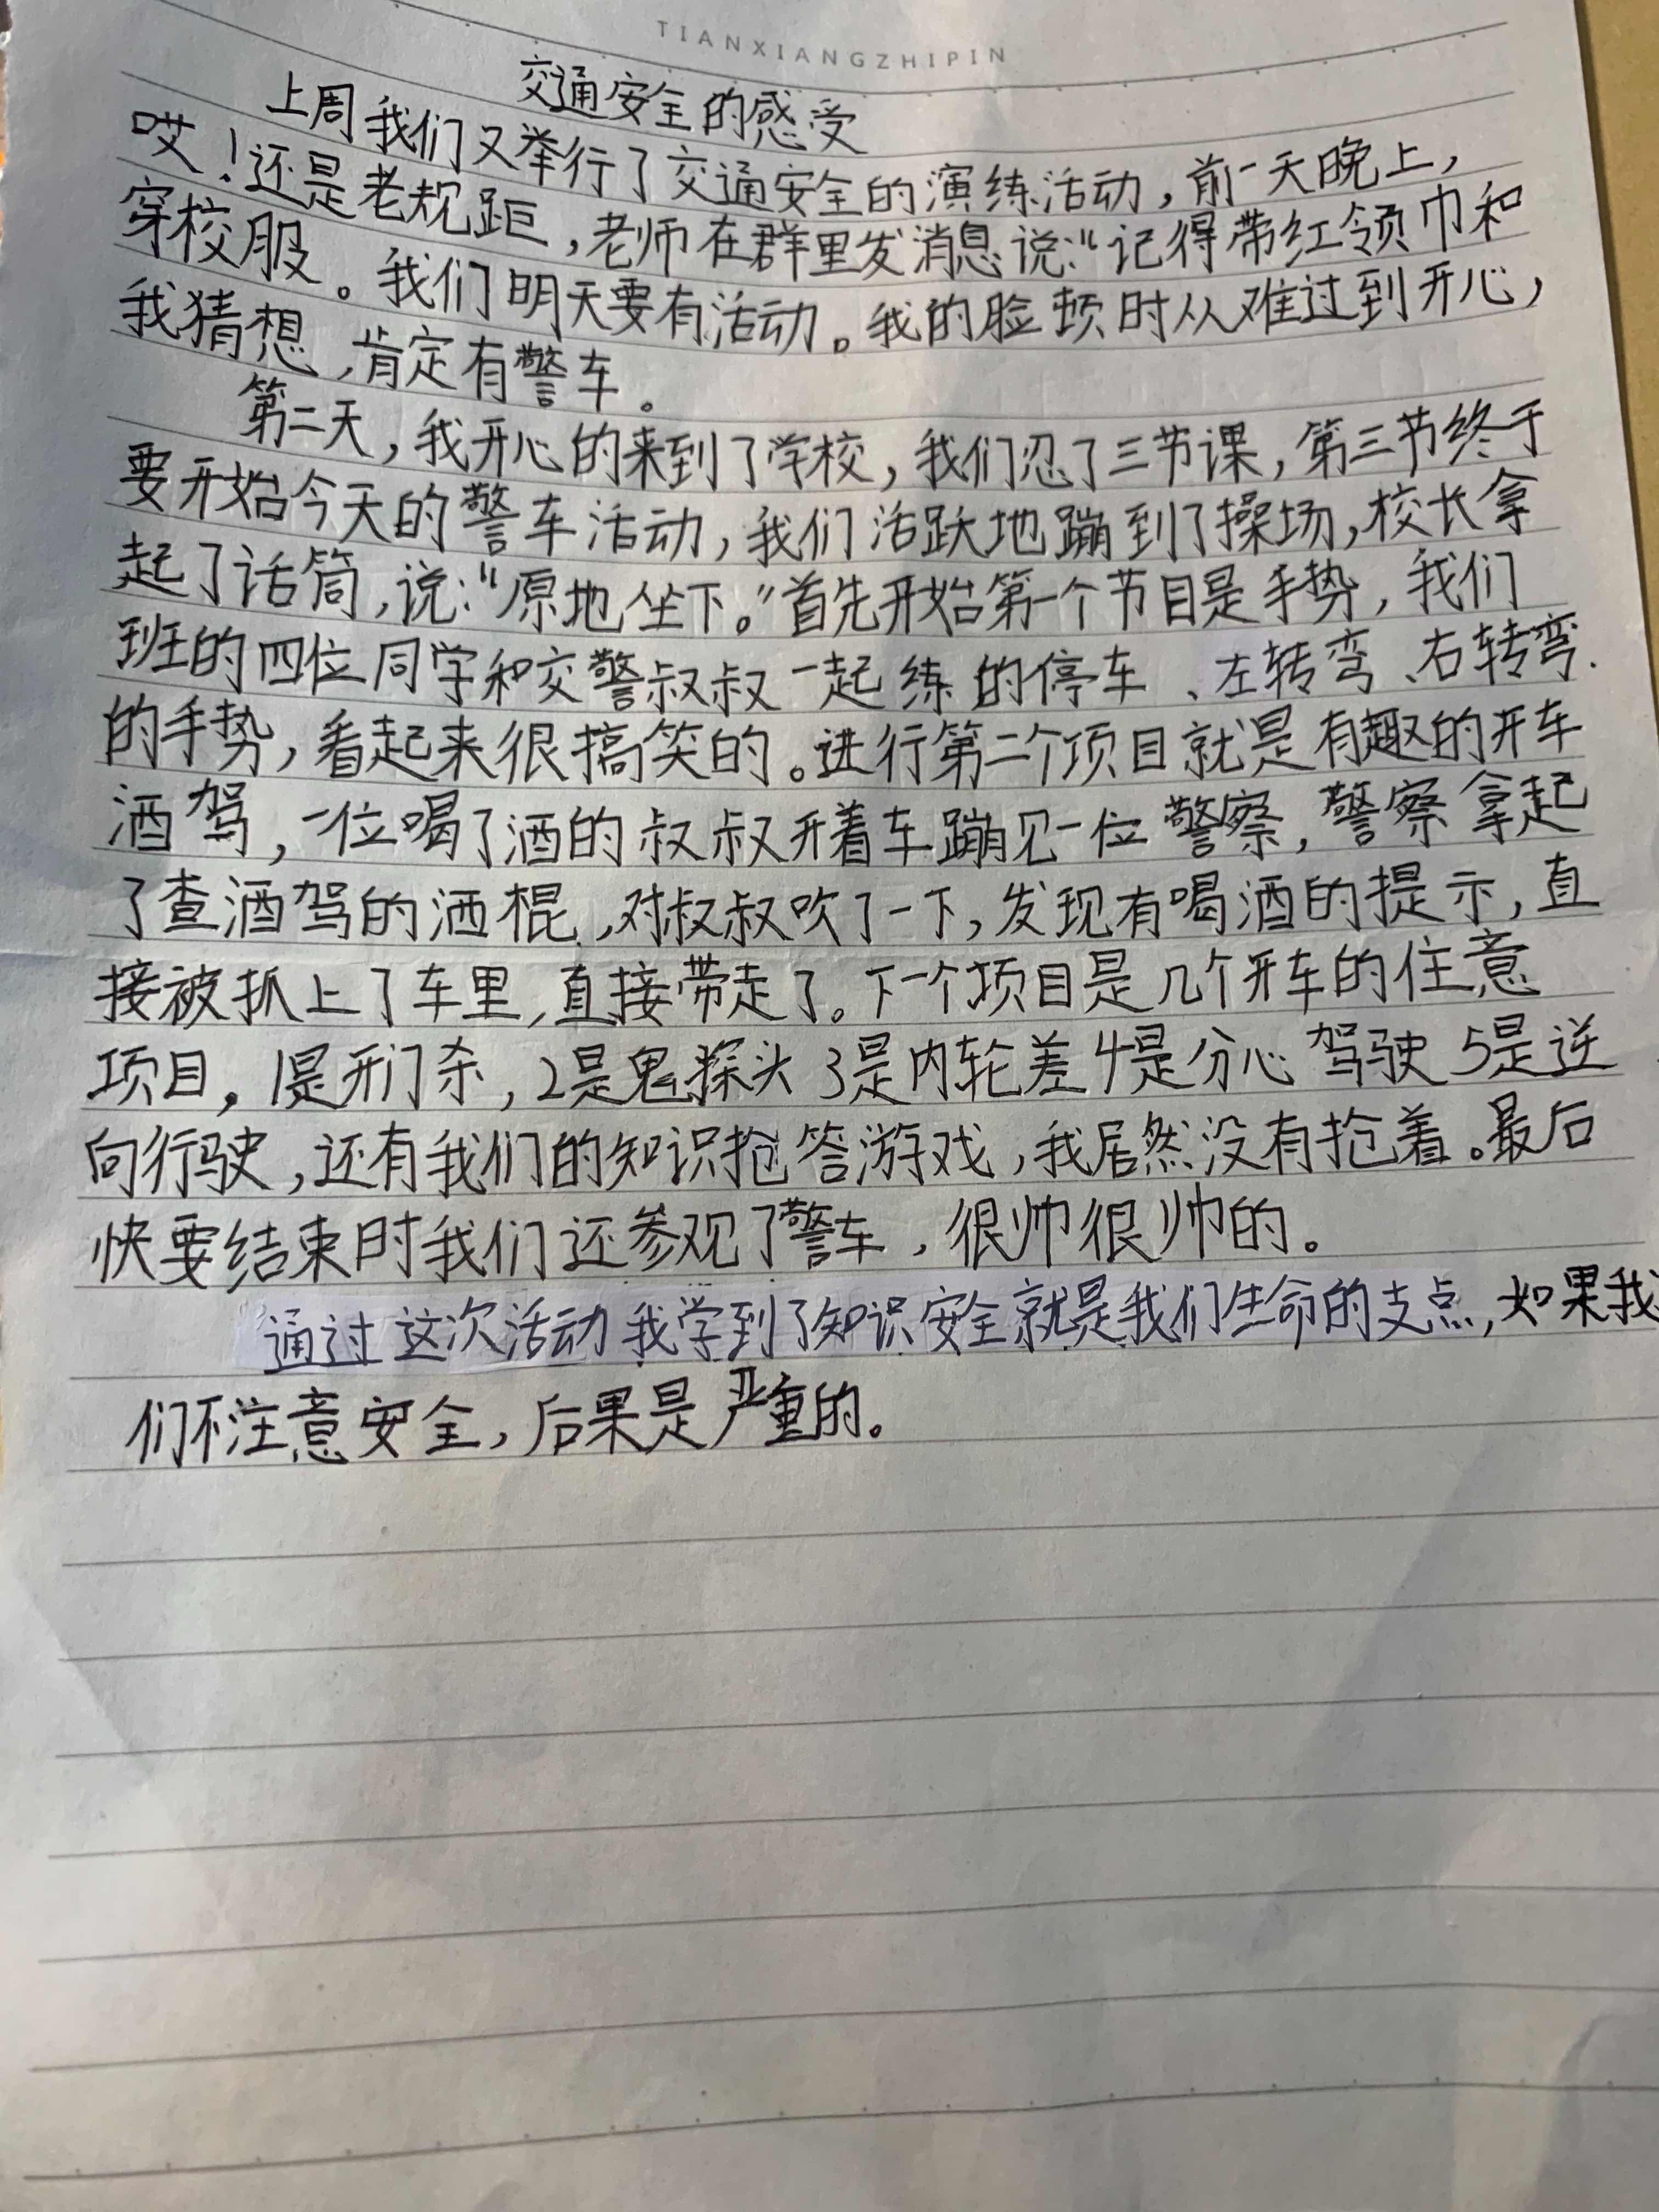 TIANXIANGZHIPIN
交通安全的感受
上周我们又举行了交通安全的演练活动，前一天晚上，
哎！还是老规距，老师在群里发消息说：“记得带红领巾和
穿校服。我们明天要有活动。我的脸顿时从难过到开心，
我猜想，肯定有警车。
第二天，我开心的来到了学校，我们忍了三节课，第三节终于
要开始今天的警车活动，我们活跃地蹦到了操场，校长拿
起了话筒，说：“原地坐下。”首先开始第一个节目是手势，我们
班的四位同学和交警叔叔一起练的停车、左转弯、右转弯
的手势，看起来很搞笑的。进行第二个项目就是有趣的开车
酒驾，一位喝了酒的叔叔开着车蹦见一位警察，警察拿起
了查酒驾的洒棍，对叔叔吹了一下，发现有喝酒的提示，直
接被抓上了车里，直接带走了。下一个项目是几个开车的住意
项目，1是开门杀，2是鬼探头 3是内轮差 4是分心驾驶 5是逆
向行驶，还有我们的知识抢答游戏，我居然没有抢着。最后
快要结束时我们还参观了警车，很帅很帅的。
通过这次活动我学到了知识安全就是我们生命的支点，如果我
们不注意安全，后果是严重的。